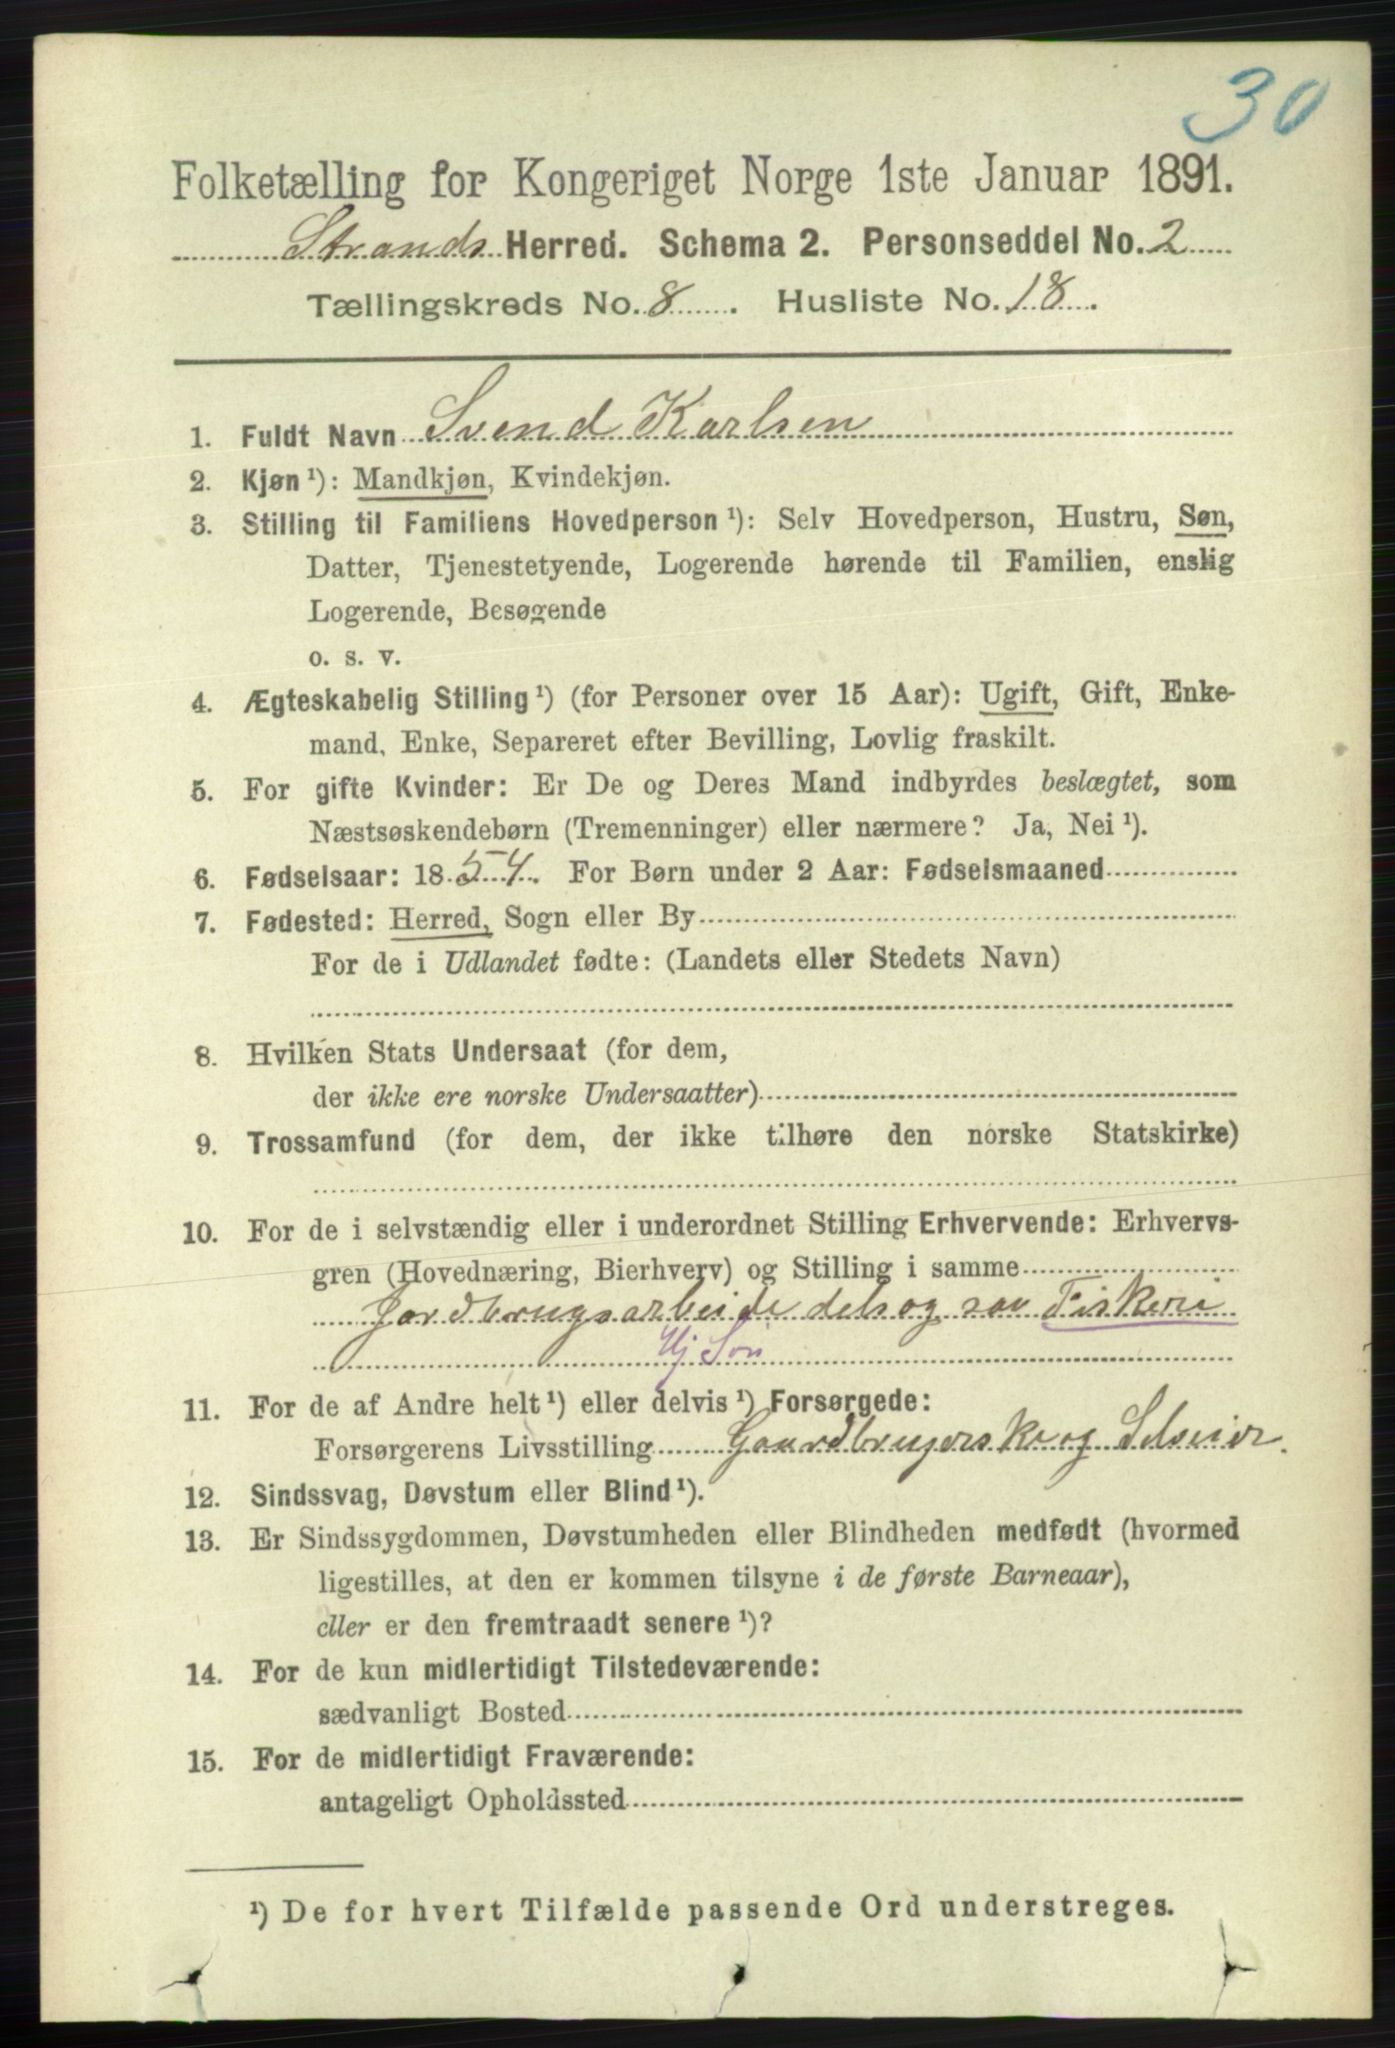 30
Folketælling for Kongeriget Norge 1ste Januar 1891.
Strands Herred. Schema 2. Personseddel No. 2
Tællingskreds No. 8. Husliste No. 18.
1. Fuldt Navn Svend Karlsen
2. Kjøn ¹): Mandkjøn, Kvindekjøn.
3. Stilling til Familiens Hovedperson ¹): Selv Hovedperson, Hustru, Søn,
Datter, Tjenestetyende, Logerende hørende til Familien, enslig
Logerende, Besøgende
o. s. v.
4. Ægteskabelig Stilling ¹) (for Personer over 15 Aar): Ugift, Gift, Enke-
mand, Enke, Separeret efter Bevilling, Lovlig fraskilt.
5. For gifte Kvinder: Er De og Deres Mand indbyrdes beslægtet, som
Næstsøskendebørn (Tremenninger) eller nærmere? Ja, Nei ¹).
6. Fødselsaar: 1854. For Børn under 2 Aar: Fødselsmaaned
7. Fødested: Herred, Sogn eller By
For de i Udlandet fødte: (Landets eller Stedets Navn)
8. Hvilken Stats Undersaat (for dem,
der ikke ere norske Undersaatter)
9. Trossamfund (for dem, der ikke tilhøre den norske Statskirke)
10. For de i selvstændig eller i underordnet Stilling Erhvervende: Erhvervs-
gren (Hovednæring, Bierhverv) og Stilling i samme
Jordbrugsarbeide dels og saa Fiskeri
Hj Søn
11. For de af Andre helt ¹) eller delvis ¹) Forsørgede:
Forsørgerens Livsstilling Gaardbrugerske og Selveier.
12. Sindssvag, Døvstum eller Blind ¹).
13. Er Sindssygdommen, Døvstumheden eller Blindheden medfødt (hvormed
ligestilles, at den er kommen tilsyne i de første Barneaar),
eller er den fremtraadt senere ¹)?
14. For de kun midlertidigt Tilstedeværende:
sædvanligt Bosted
15. For de midlertidigt Fraværende:
antageligt Opholdssted
¹) De for hvert Tilfælde passende Ord understreges.